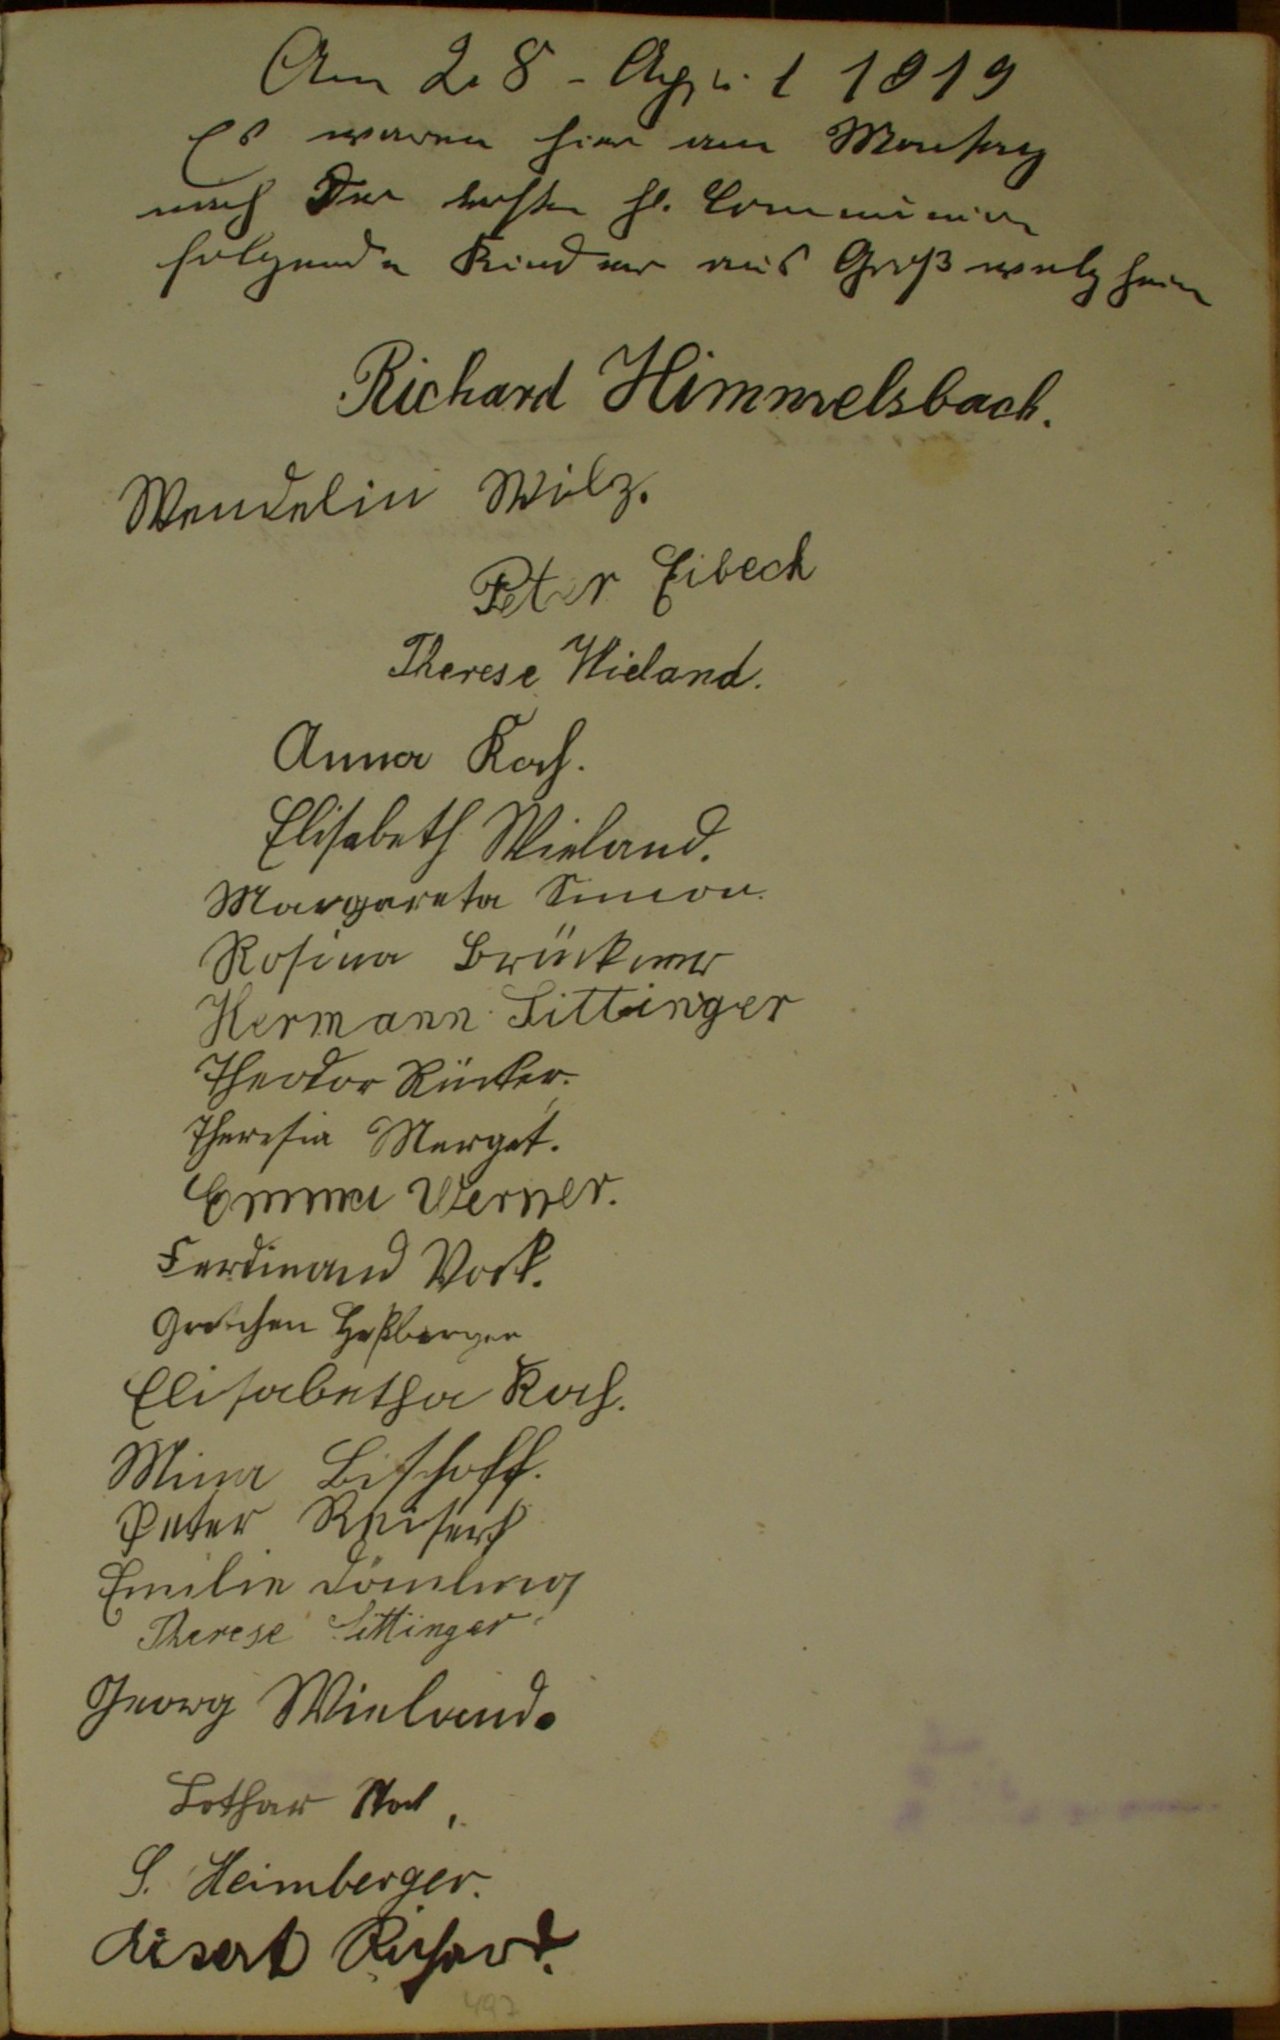 Am 28 - April 1919
Es waren hier am Montag
nach der ersten hl. Communion
folgende Kinder aus Großwelzheim
Richard Himmelsbach.
Wendelin Wilz.
Peter Eibeck
Therese Wieland.
Anna Koch.
Elisabeth Wieland.
Margareta Simon.
Rosina Brückner
Hermann Sittinger
Theodor Rücker.
Theresia Merget.
Emma Werner.
Ferdinand Vock.
Gretchen Heßberger
Elisabetha Koch.
Mina Bischoff.
Peter Reisert
Emilie Dömling
Therese Sittinger.
Georg Wieland.
Lothar
S. Heimberger.
Richard.
497